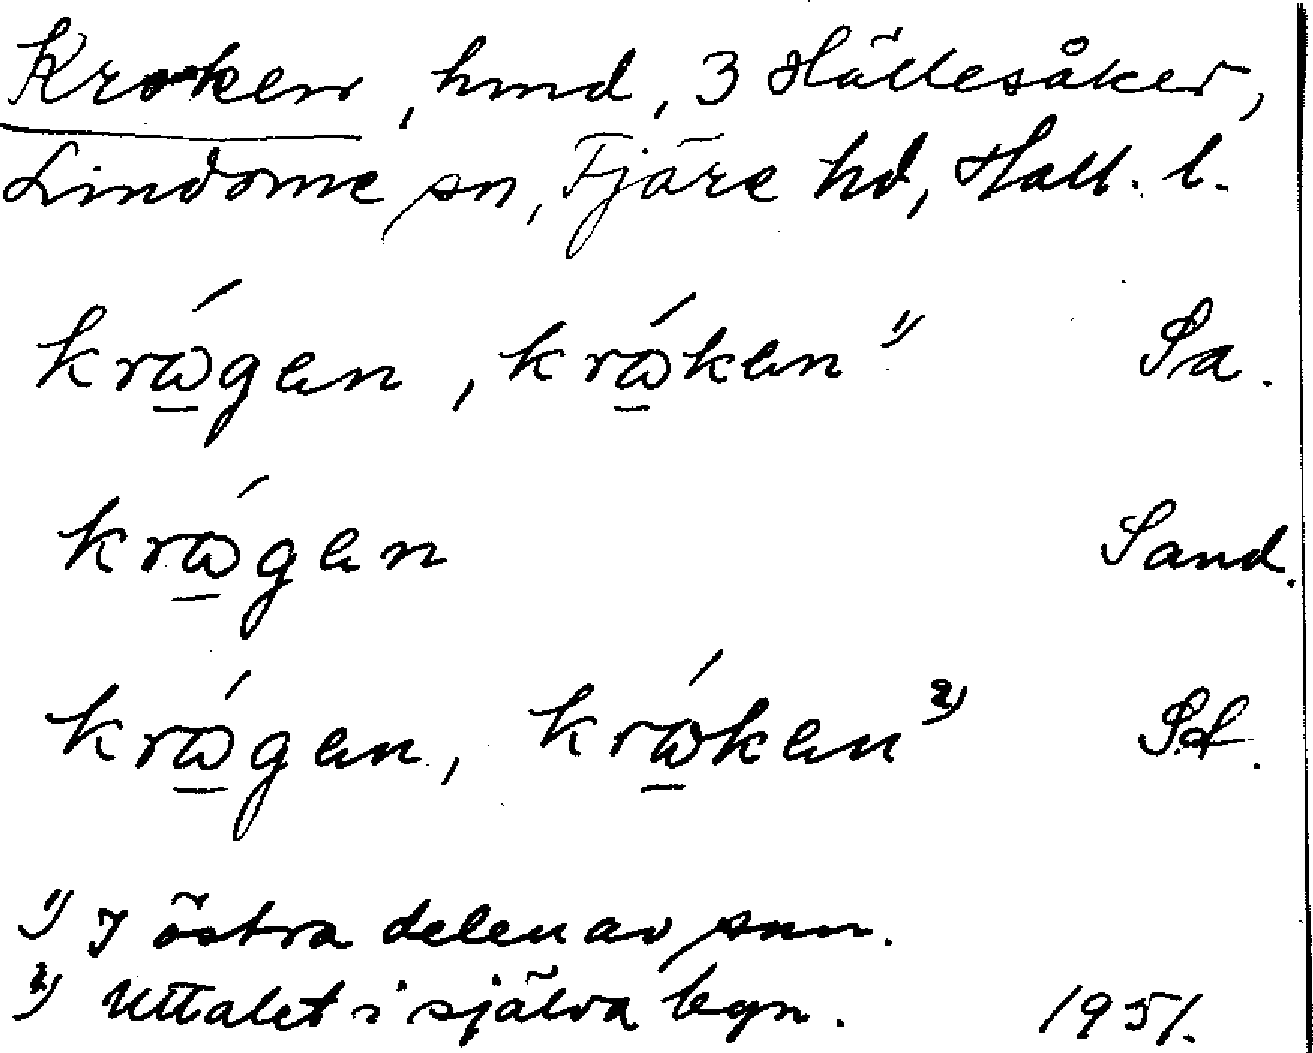 Kroken, hmd, 3 Hällesåker,
Lindome sn, Fjäre hd, Hall. l.
krǻgen, krǻken 1) Sa.
krǻgen Sand.
krǻgen, krǻken 2) Sd.
1) I östra delen av snn.
2) Uttalet i själva bgn. 1951.